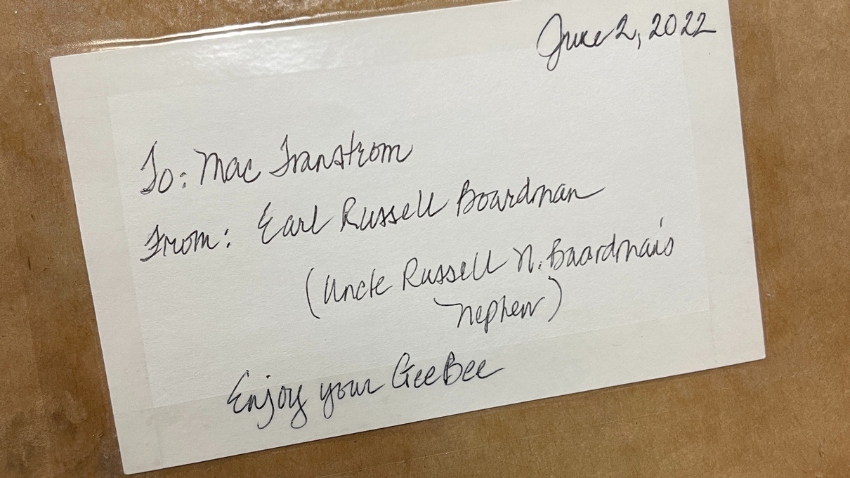 June 2, 2022
To: Mac Transtrom
From: Earl Russell Boardman
(Uncle Russell N. Boardman's
nephew)
Enjoy your GeeBee